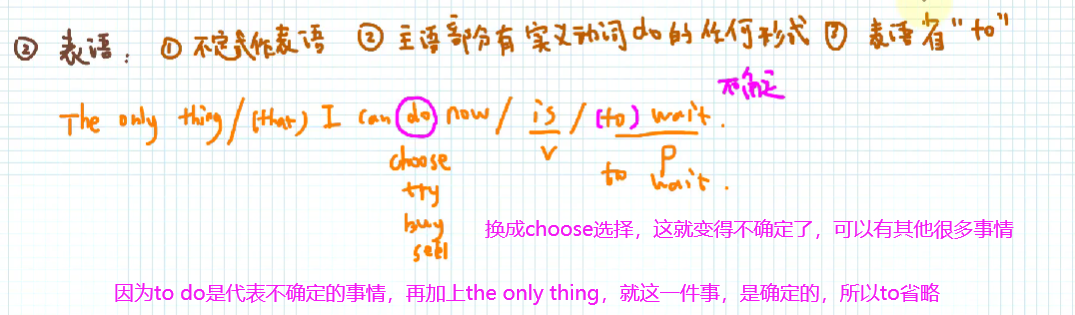 ② 表语：① 不定式作表语 ② 主语部分有实义动词do的任何形式 ⑦ 表语省“to”
不确定
The only thing/(that) I can do now / is / (to) wait.
choose v to p wait.
try
buy
sell
换成choose选择，这就变得不确定了，可以有其他很多事情
因为to do是代表不确定的事情，再加上the only thing，就这一件事，是确定的，所以to省略